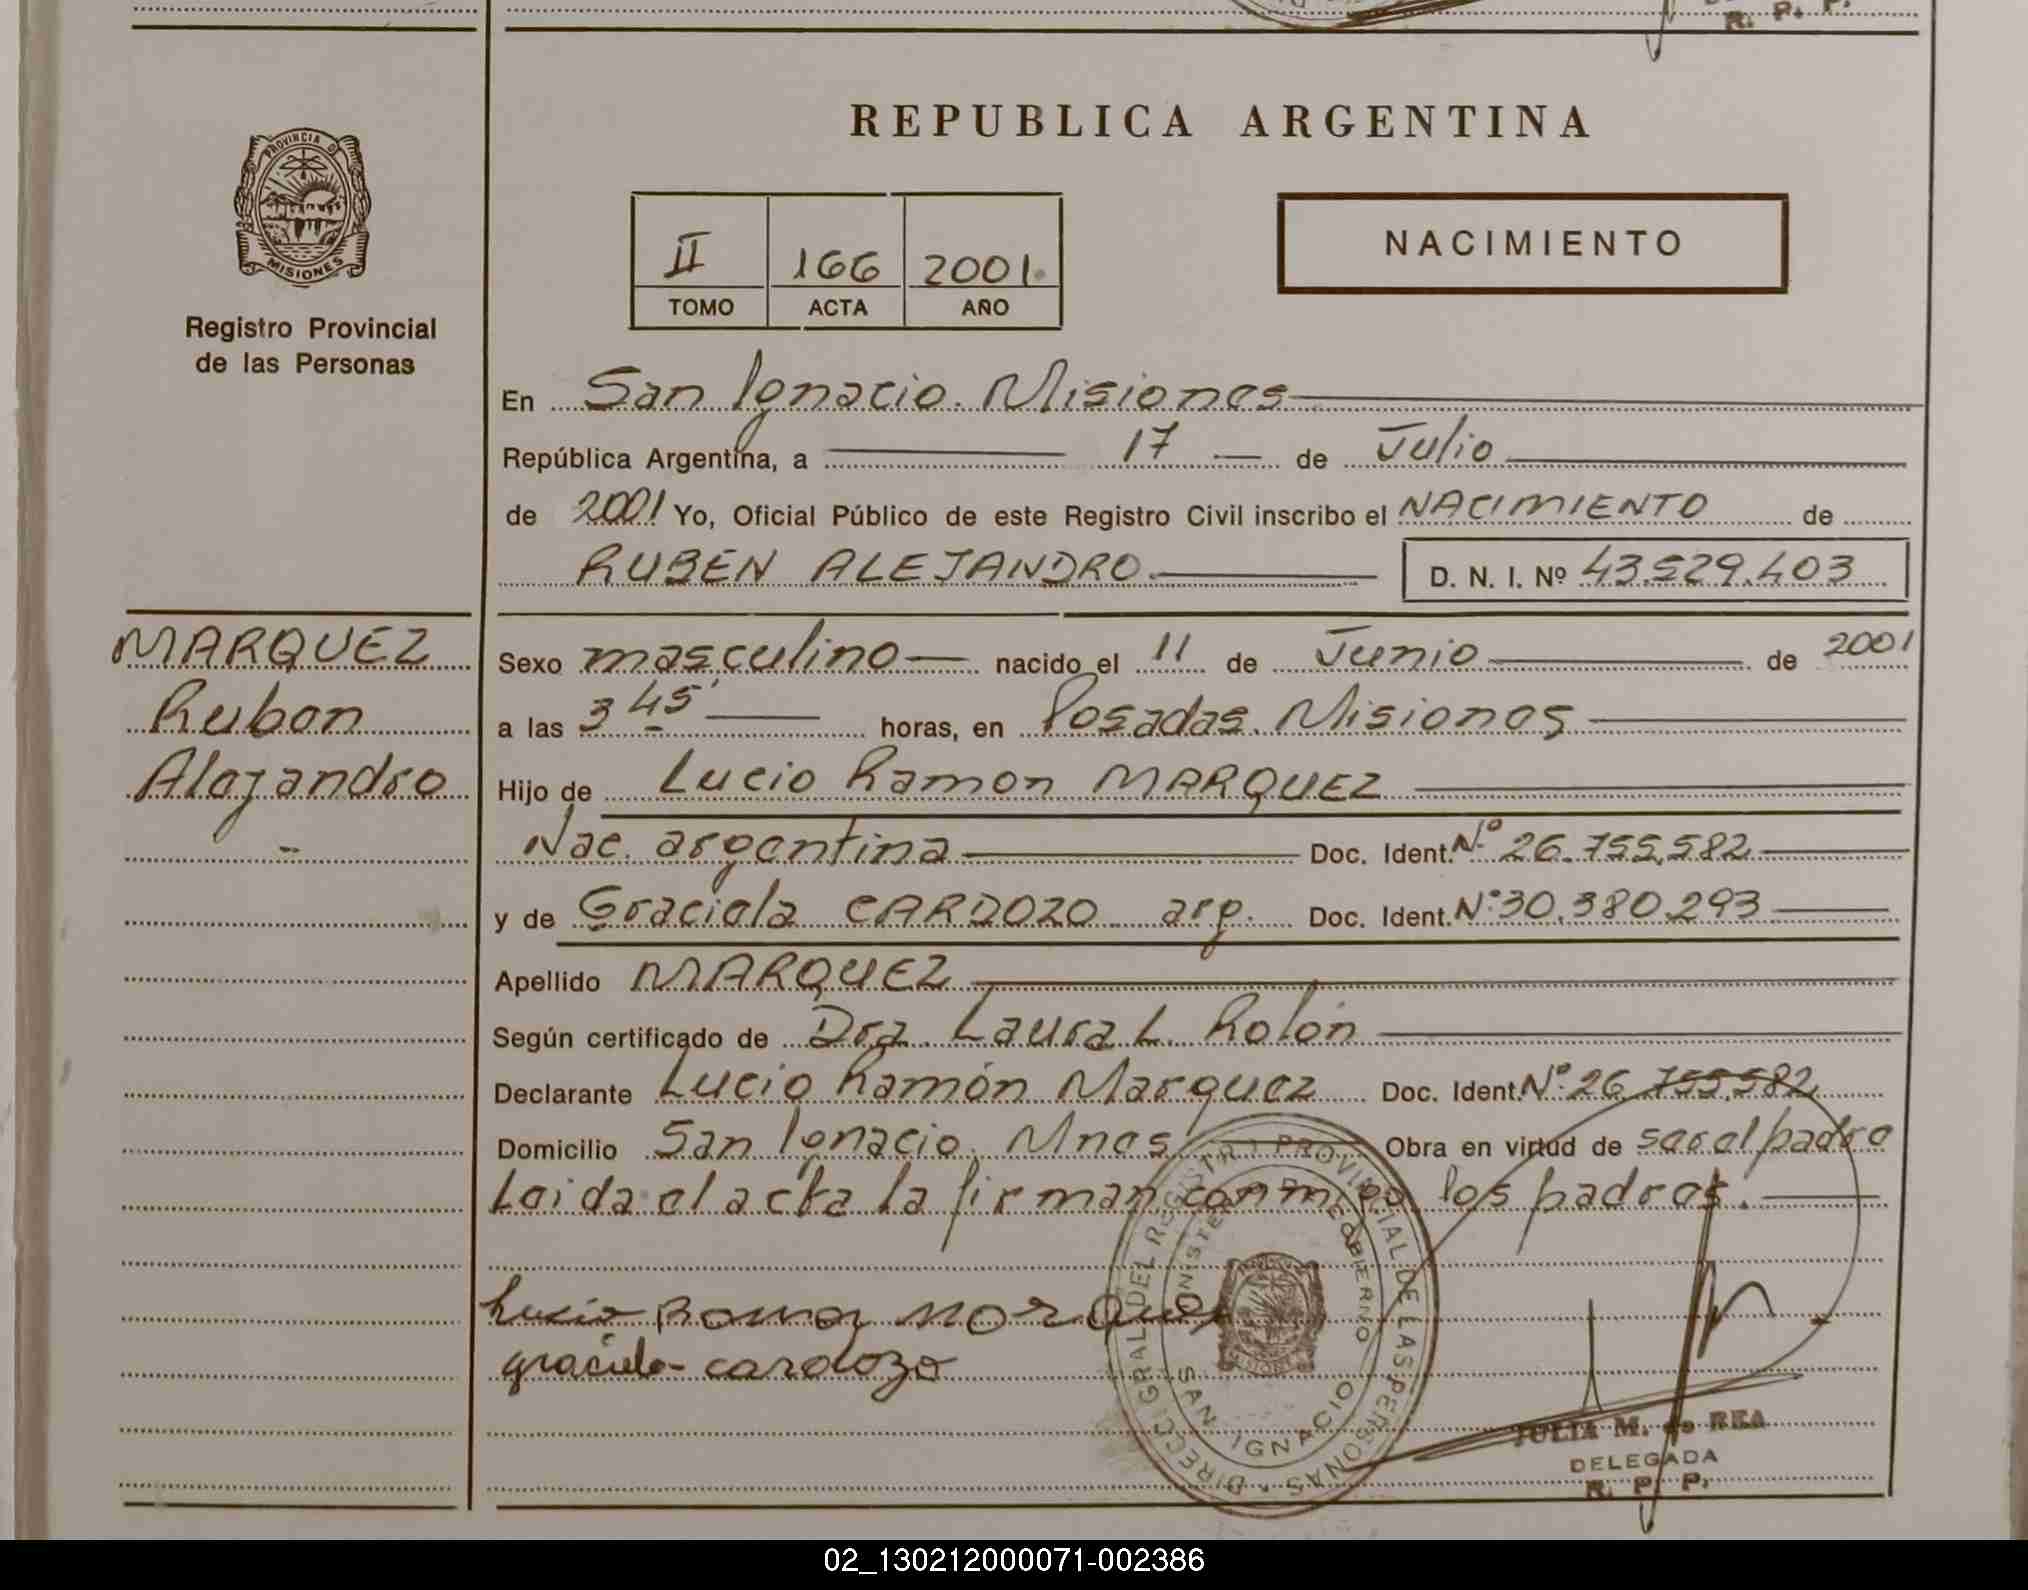 R. P. P.
REPUBLICA ARGENTINA
PROVINCIA D
MISIONES
Registro Provincial
de las Personas
II 166 2001
TOMO ACTA AÑO
NACIMIENTO
En San Ignacio. Misiones
República Argentina, a 17 de Julio
de 2001 Yo, Oficial Público de este Registro Civil inscribo el NACIMIENTO de
RUBEN ALEJANDRO D. N. I. Nº 43.529.403
MARQUEZ
Ruben
Alejandro
Sexo masculino nacido el 11 de Junio de 2001
a las 3 45' horas, en Posadas. Misiones
Hijo de Lucio Ramon MARQUEZ
Nac. argentina Doc. Ident. Nº 26.755.582
y de Graciela CARDOZO arg. Doc. Ident. Nº 30.380.293
Apellido MARQUEZ
Según certificado de Dra. Laura L. Rolón
Declarante Lucio Ramón Marquez Doc. Ident. Nº 26.755.582
Domicilio San Ignacio. Mnes Obra en virtud de ser el padre
Leida el acta la firman conmigo los padres.
Lucio Ramon Marquez
graciela cardozo
DIRECC. GRAL DEL REGISTRO PROVINCIAL DE LAS PERSONAS
MINISTERIO DE GOBIERNO
SAN IGNACIO
JULIA M. de REA
DELEGADA
R. P. P.
02_130212000071-002386